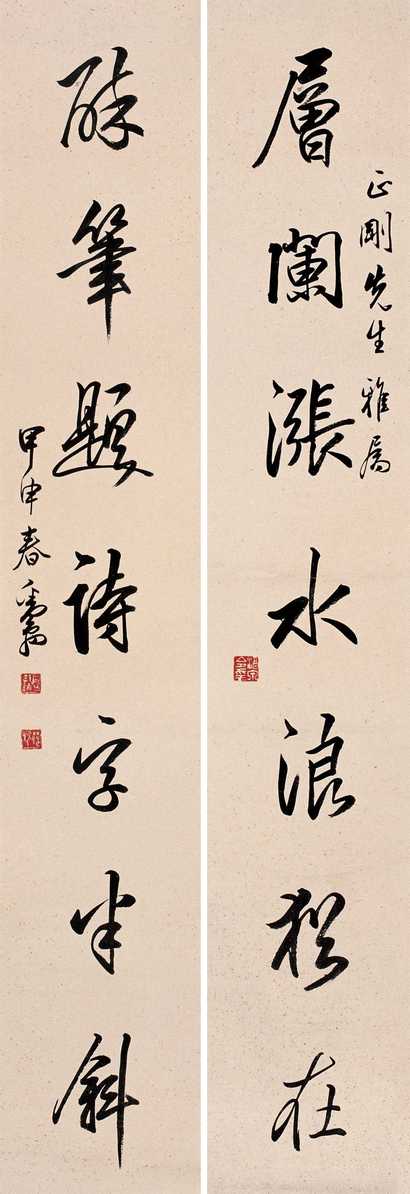 層瀾漲水痕猶在
正剛先生雅屬
醉筆題詩字半斜
甲申春